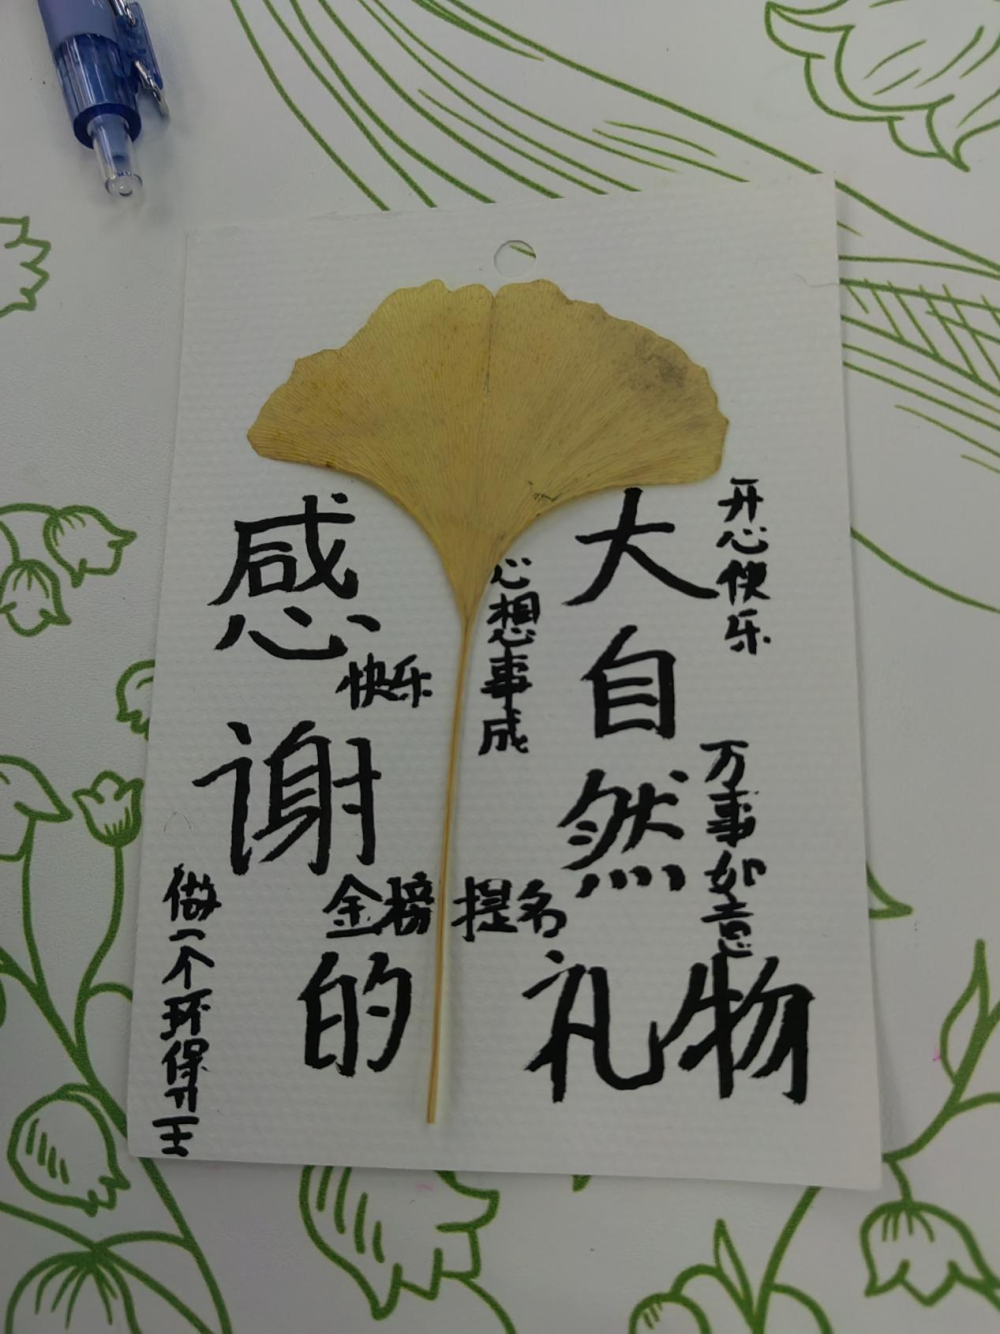 感谢的
大自然
礼物
快乐
心想事成
开心快乐
万事如意
金榜提名
做一个环保卫士